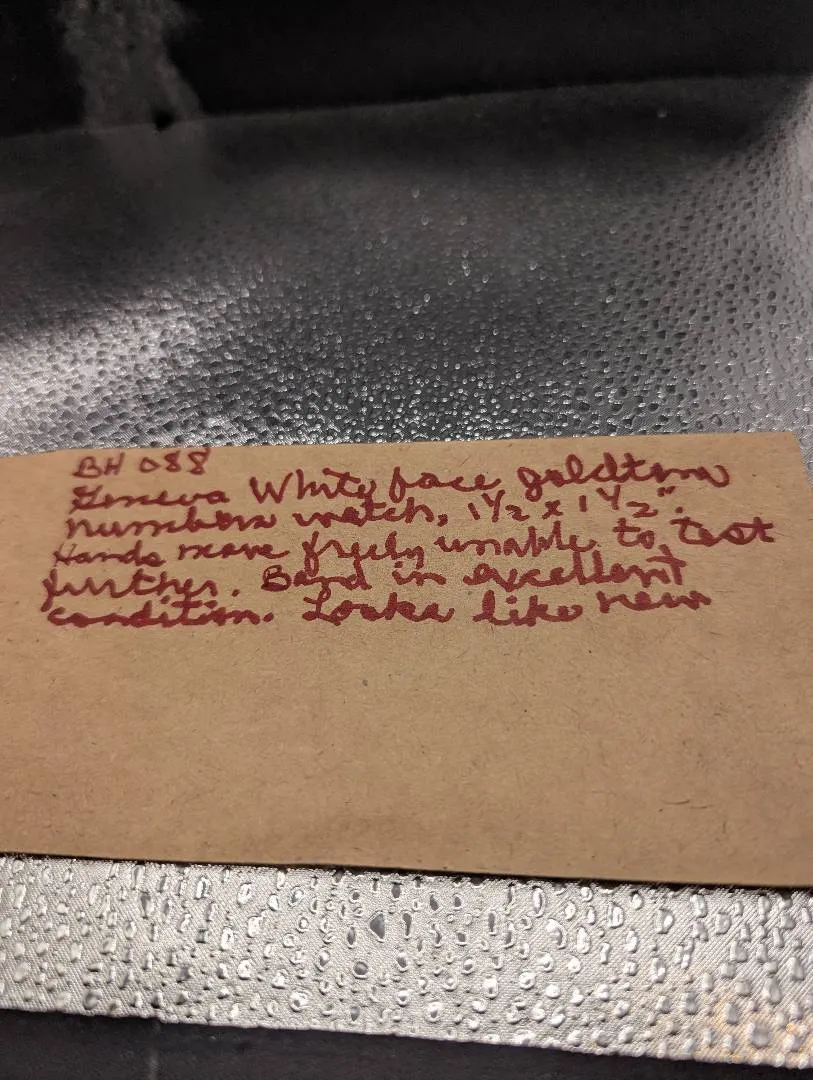 BH 088
Geneva White face goldtone
numbers watch, 1 1/2 x 1 1/2".
Hands move freely unable to test
further. Band in excellent
condition. Looks like new